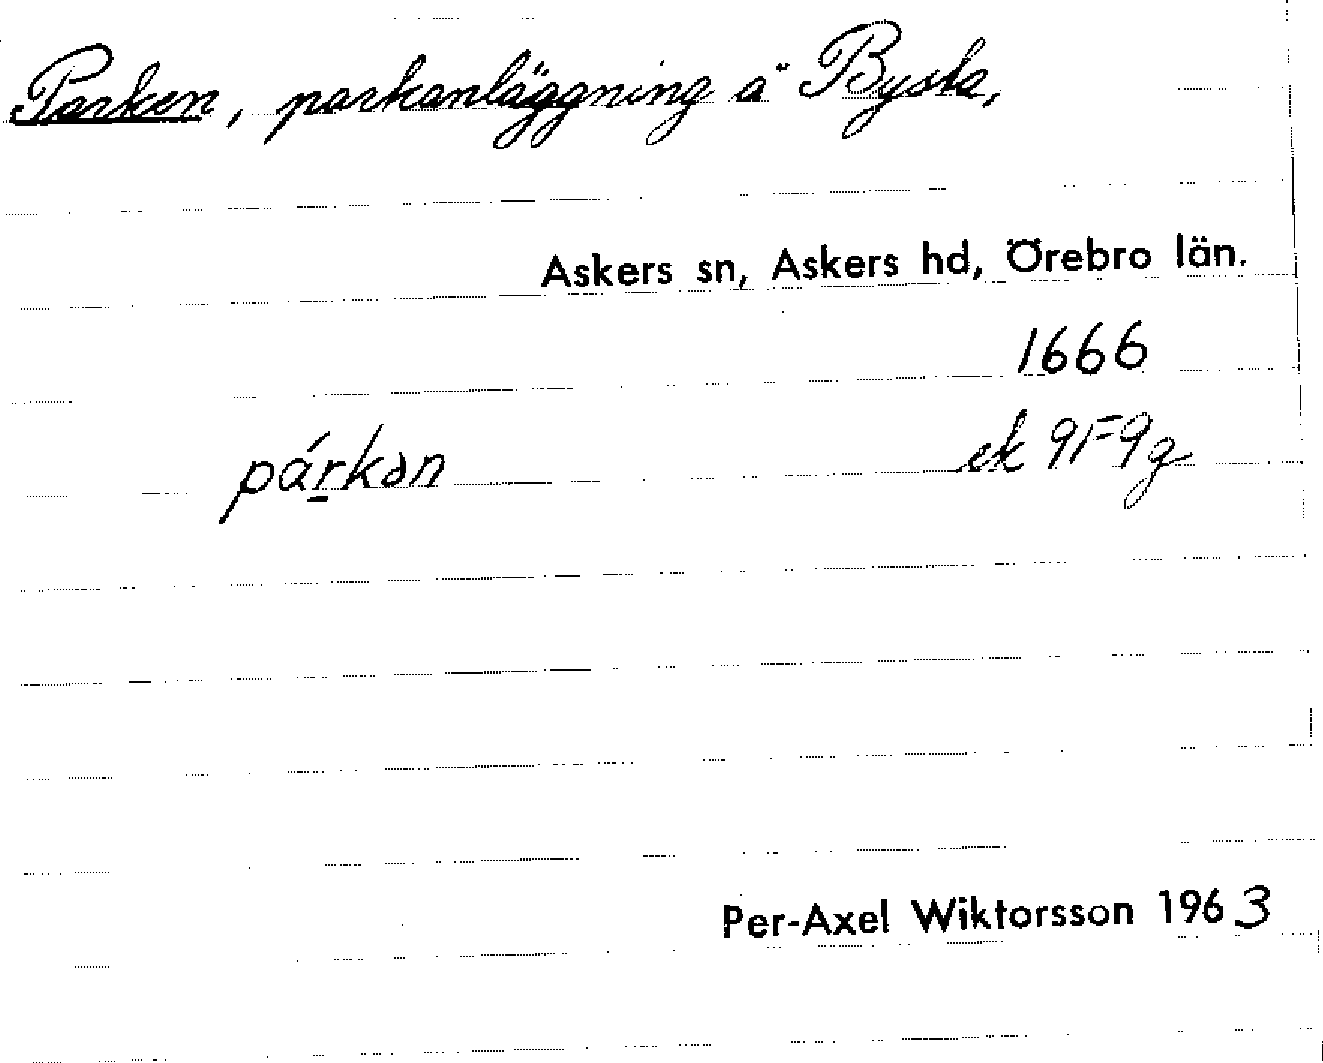 Parken, parkanläggning å Bysta,
Askers sn, Askers hd, Örebro län.
1666
párkən ek 9F9g
Per-Axel Wiktorsson 1963